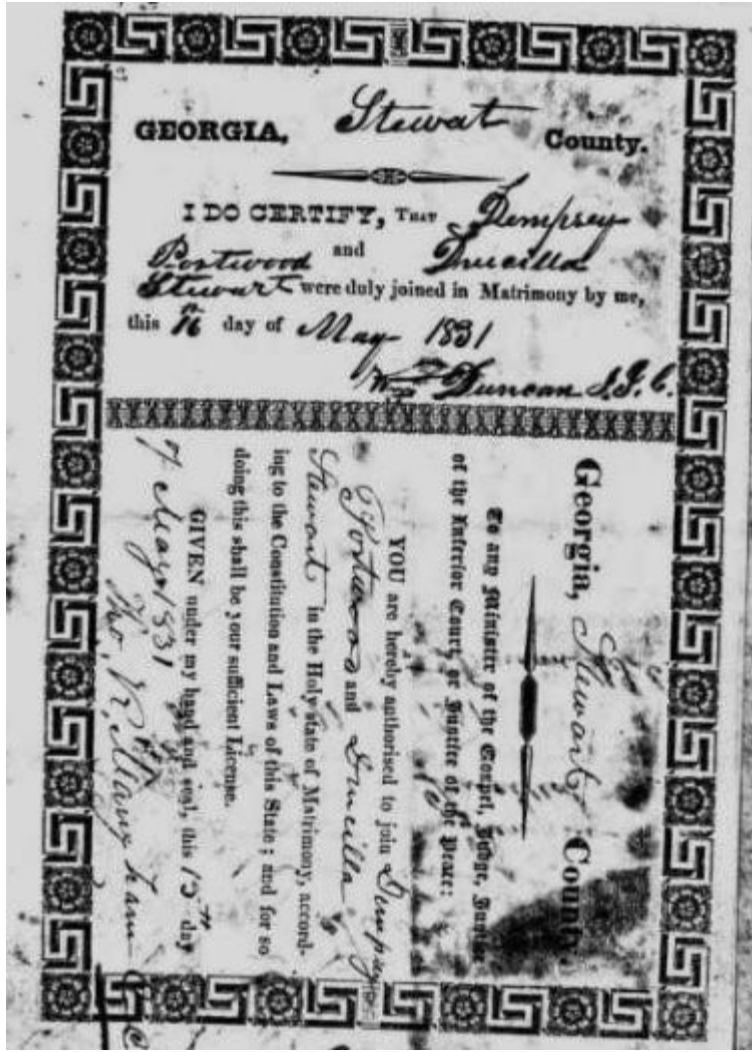 GEORGIA, Stewat County.
I DO CERTIFY, THAT Dempsey
Portwood and Drucilla
Stewart were duly joined in Matrimony by me,
this day of May 1831
Duncan J.I.C.
Georgia, Stewart County.
To any Minister of the Gospel, Judge, Justice
of the Inferior Court, or Justice of the Peace:
YOU are hereby authorised to join Dempsey
Portwood and Drucilla
Stewart in the Holy state of Matrimony, accord-
ing to the Constitution and Laws of this State; and for so
doing this shall be your sufficient License.
GIVEN under my hand and seal, this 15th day
of May 1831
Tho. R. Mangham